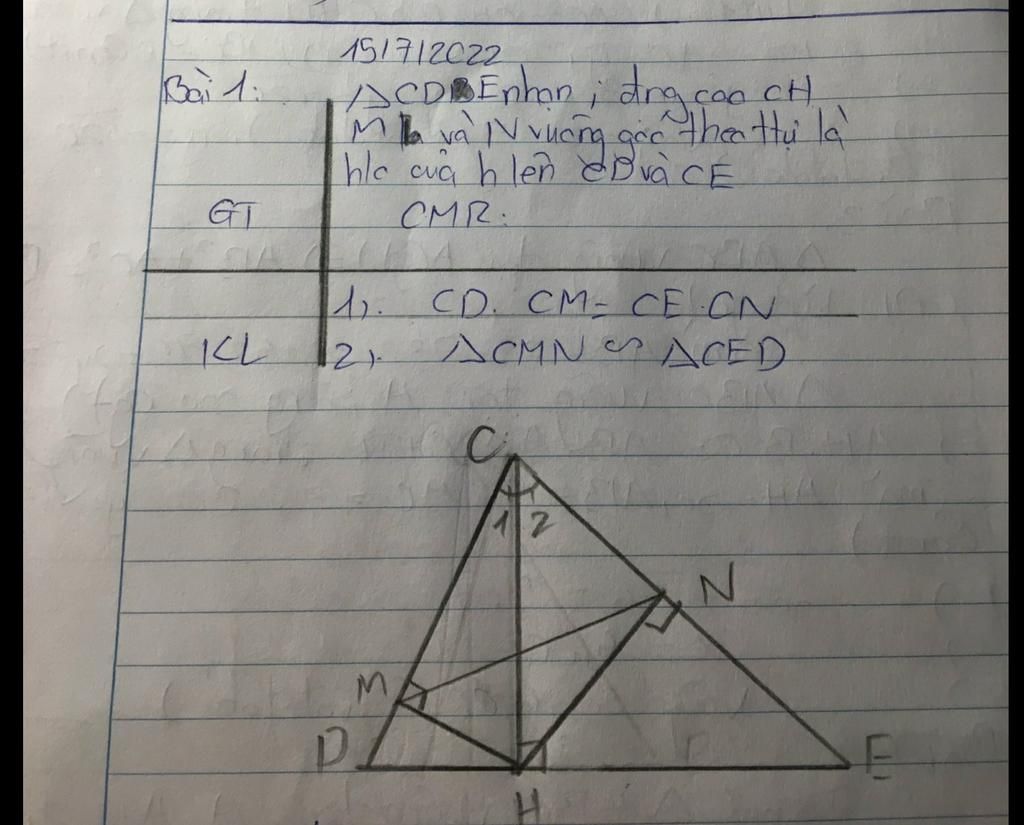 15/7/2022
Bài 1: △CDE nhọn; đng cao CH
M và N vuông góc theo ttự là
h/c của h lên CD và CE
GT CMR:
1). CD. CM = CE.CN
KL 2). △CMN ∽ △CED
C
1 2
N
M
D E
H